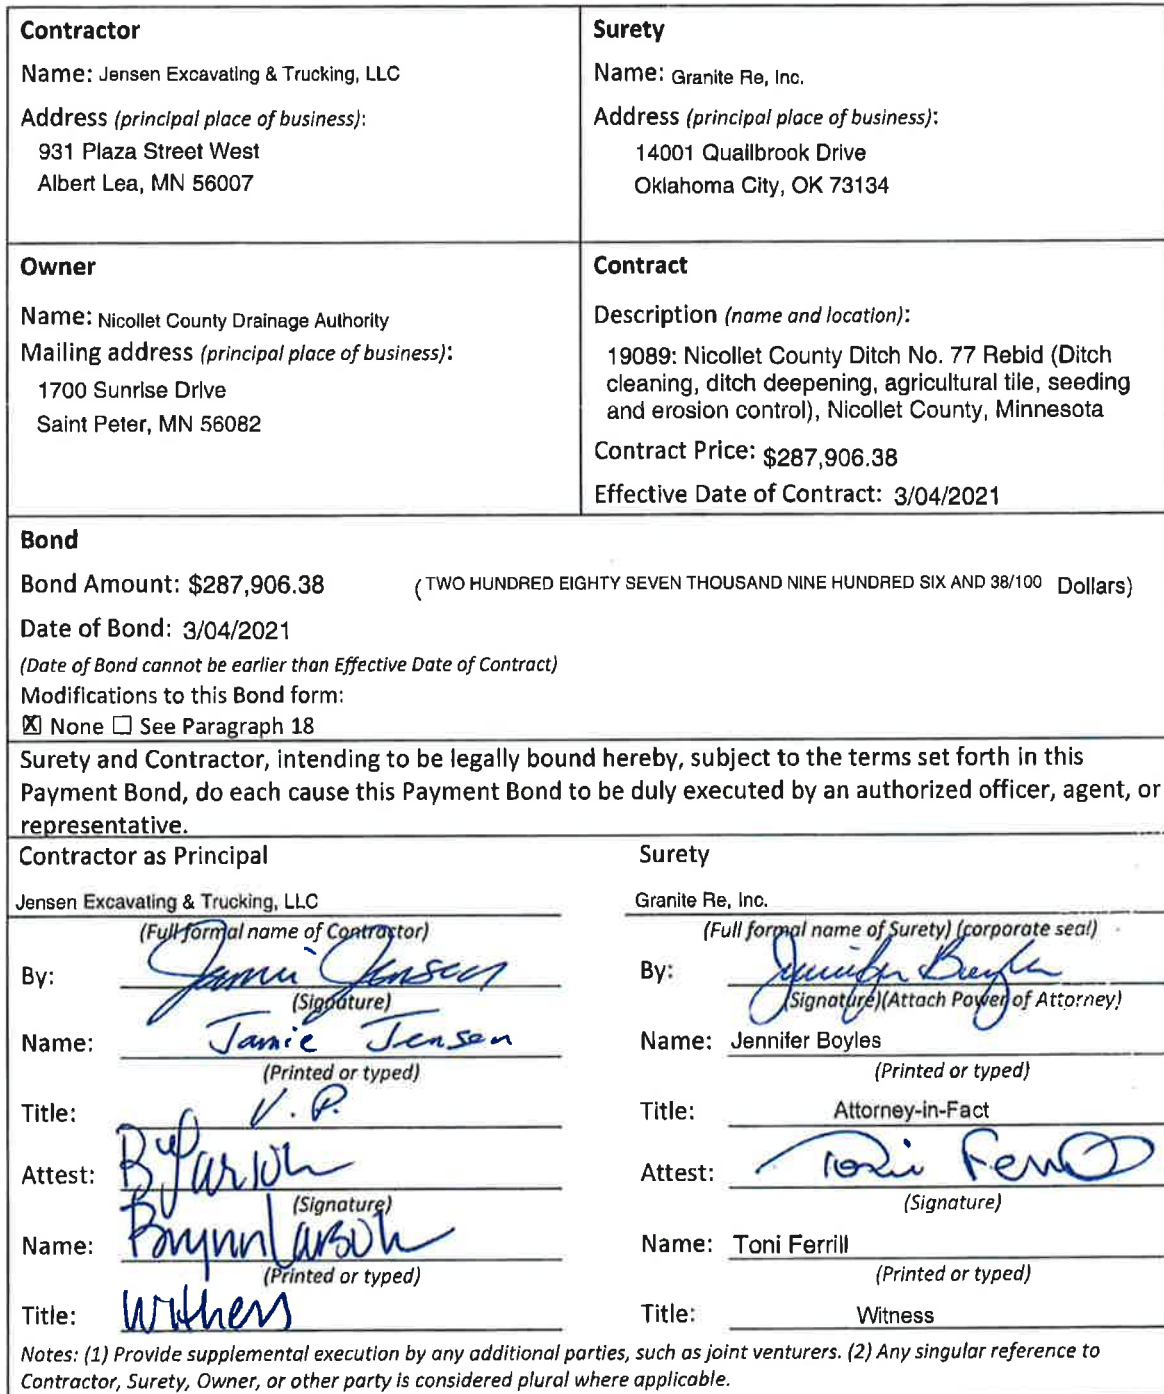 Contractor
Name: Jensen Excavating & Trucking, LLC
Address (principal place of business):
931 Plaza Street West
Albert Lea, MN 56007
Surety
Name: Granite Re, Inc.
Address (principal place of business):
14001 Quailbrook Drive
Oklahoma City, OK 73134
Owner
Name: Nicollet County Drainage Authority
Mailing address (principal place of business):
1700 Sunrise Drive
Saint Peter, MN 56082
Contract
Description (name and location):
19089: Nicollet County Ditch No. 77 Rebid (Ditch
cleaning, ditch deepening, agricultural tile, seeding
and erosion control), Nicollet County, Minnesota
Contract Price: $287,906.38
Effective Date of Contract: 3/04/2021
Bond
Bond Amount: $287,906.38 (TWO HUNDRED EIGHTY SEVEN THOUSAND NINE HUNDRED SIX AND 38/100 Dollars)
Date of Bond: 3/04/2021
(Date of Bond cannot be earlier than Effective Date of Contract)
Modifications to this Bond form:
☒ None ☐ See Paragraph 18
Surety and Contractor, intending to be legally bound hereby, subject to the terms set forth in this
Payment Bond, do each cause this Payment Bond to be duly executed by an authorized officer, agent, or
representative.
Contractor as Principal
Jensen Excavating & Trucking, LLC
(Full formal name of Contractor)
By: Jamie Jensen
(Signature)
Name: Jamie Jensen
(Printed or typed)
Title: V.P.
Attest: B Larson
(Signature)
Name: Brynn Larson
(Printed or typed)
Title: Witness
Surety
Granite Re, Inc.
(Full formal name of Surety) (corporate seal)
By: Jennifer Boyles
(Signature)(Attach Power of Attorney)
Name: Jennifer Boyles
(Printed or typed)
Title: Attorney-in-Fact
Attest: Toni Ferrill
(Signature)
Name: Toni Ferrill
(Printed or typed)
Title: Witness
Notes: (1) Provide supplemental execution by any additional parties, such as joint venturers. (2) Any singular reference to
Contractor, Surety, Owner, or other party is considered plural where applicable.